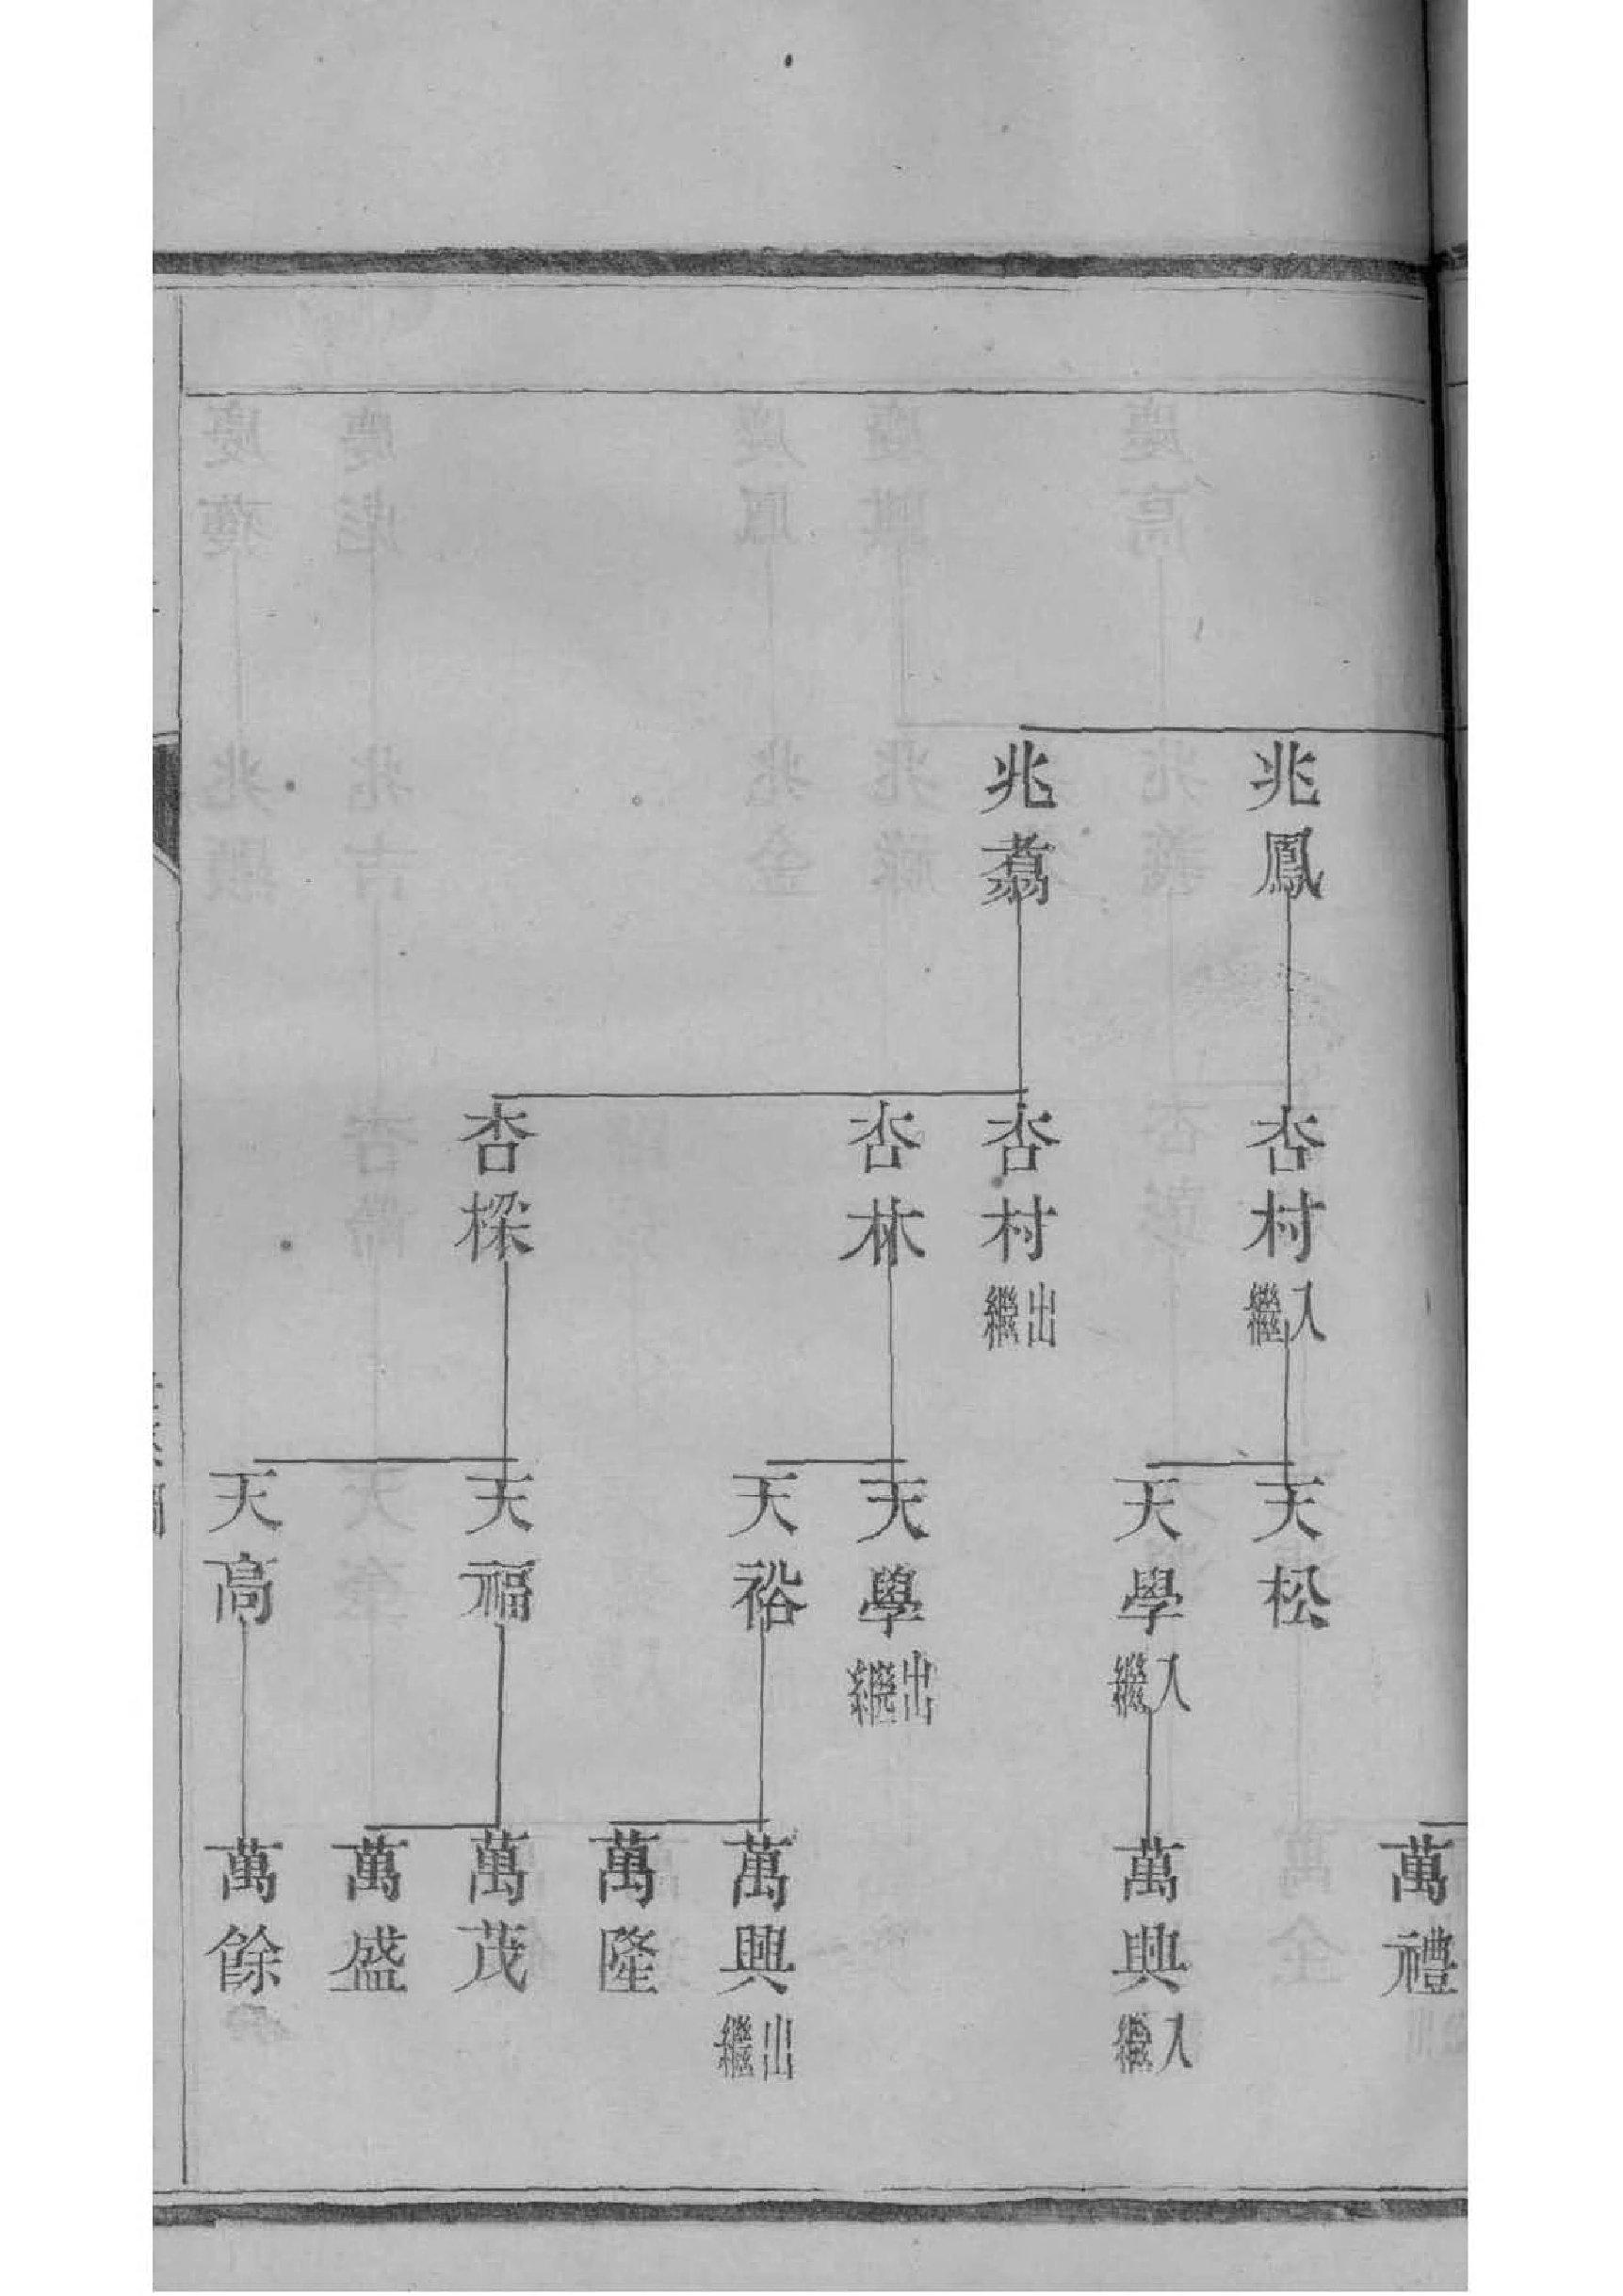 兆鳳
兆翥
杏村 入繼
杏村 出繼
杏林
杏樑
天松
天學 入繼
天學 出繼
天裕
天福
天高
萬禮
萬興 入繼
萬興 出繼
萬隆
萬茂
萬盛
萬餘